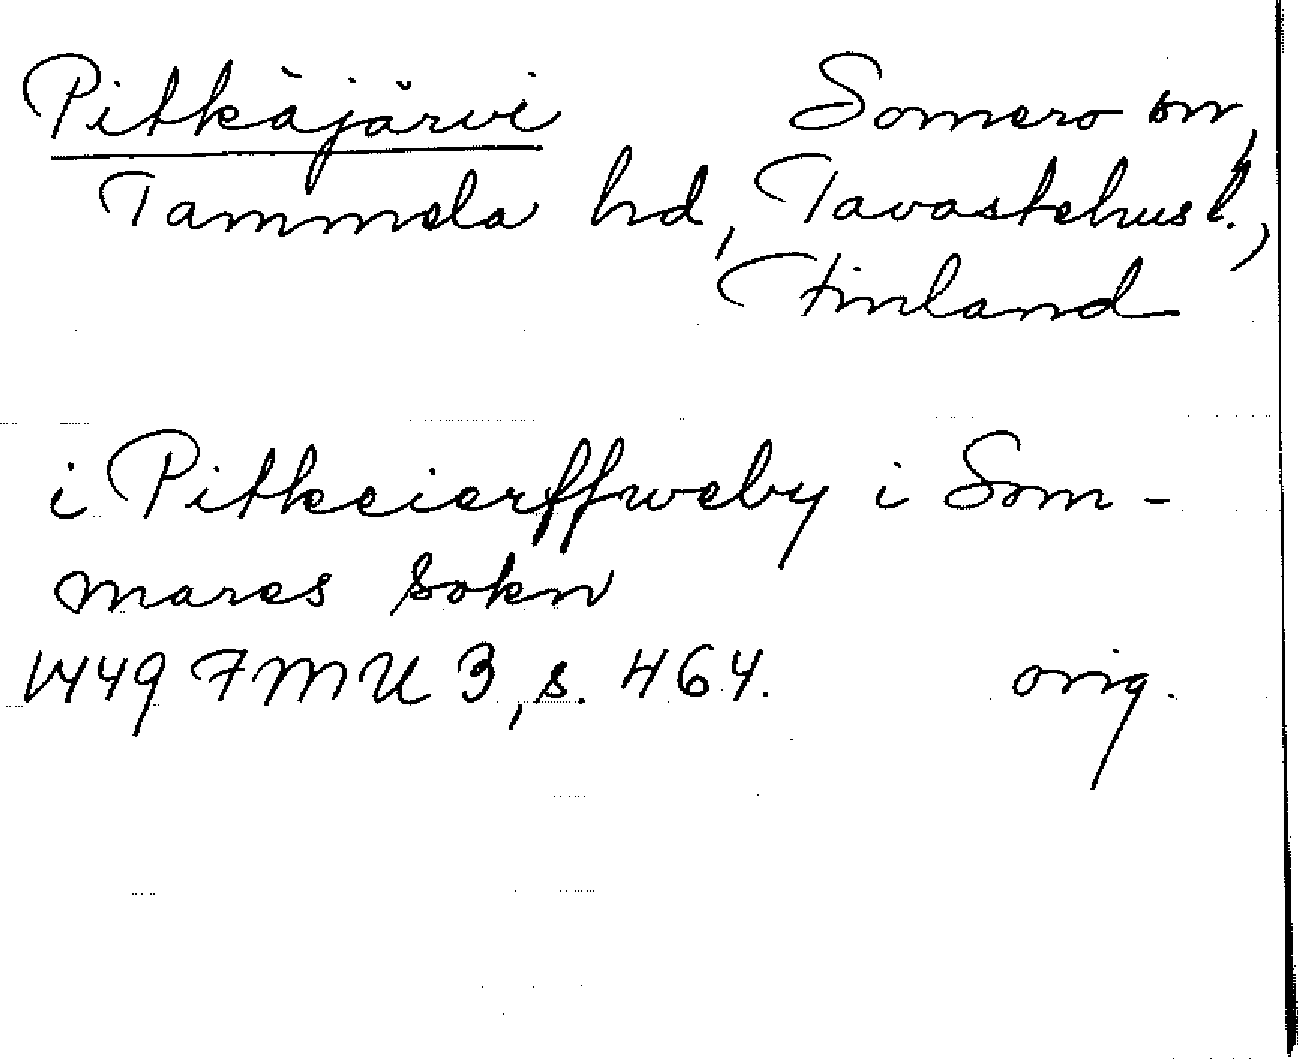 Pitkäjärvi Somero sn,
Tammela hd, Tavastehus l.,
Finland
i Pitkeierffweby i Som-
mares sokn
1449 FMU 3, s. 464. orig.